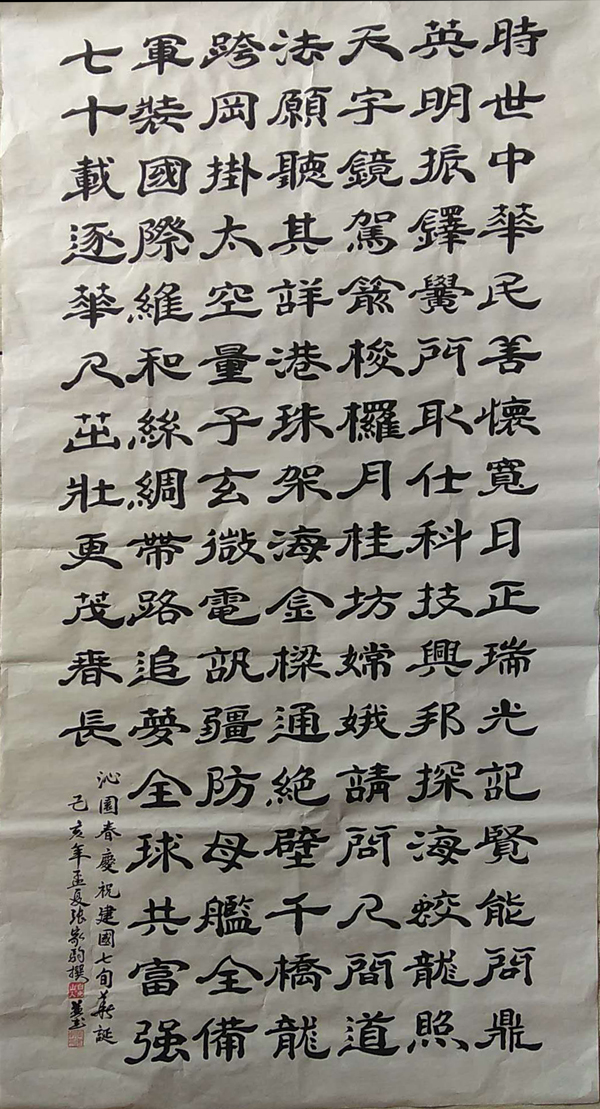 時世中華民善懷寬日正瑞光記賢能問鼎
英明振鐸黌所取仕科技興邦探海蛟龍照
天宇鏡駕箭梭欏月桂坊嫦娥請問人間道
法願聽其詳港珠架海金樑通絕壁千橋龍
跨岡掛太空量子玄微電訊疆防母艦全備
軍裝國際維和絲綢帶路追夢全球共富强
七十載逐華人茁壯更茂春長
沁園春慶祝建國七旬華誕
己亥年孟夏張家駒撰並書